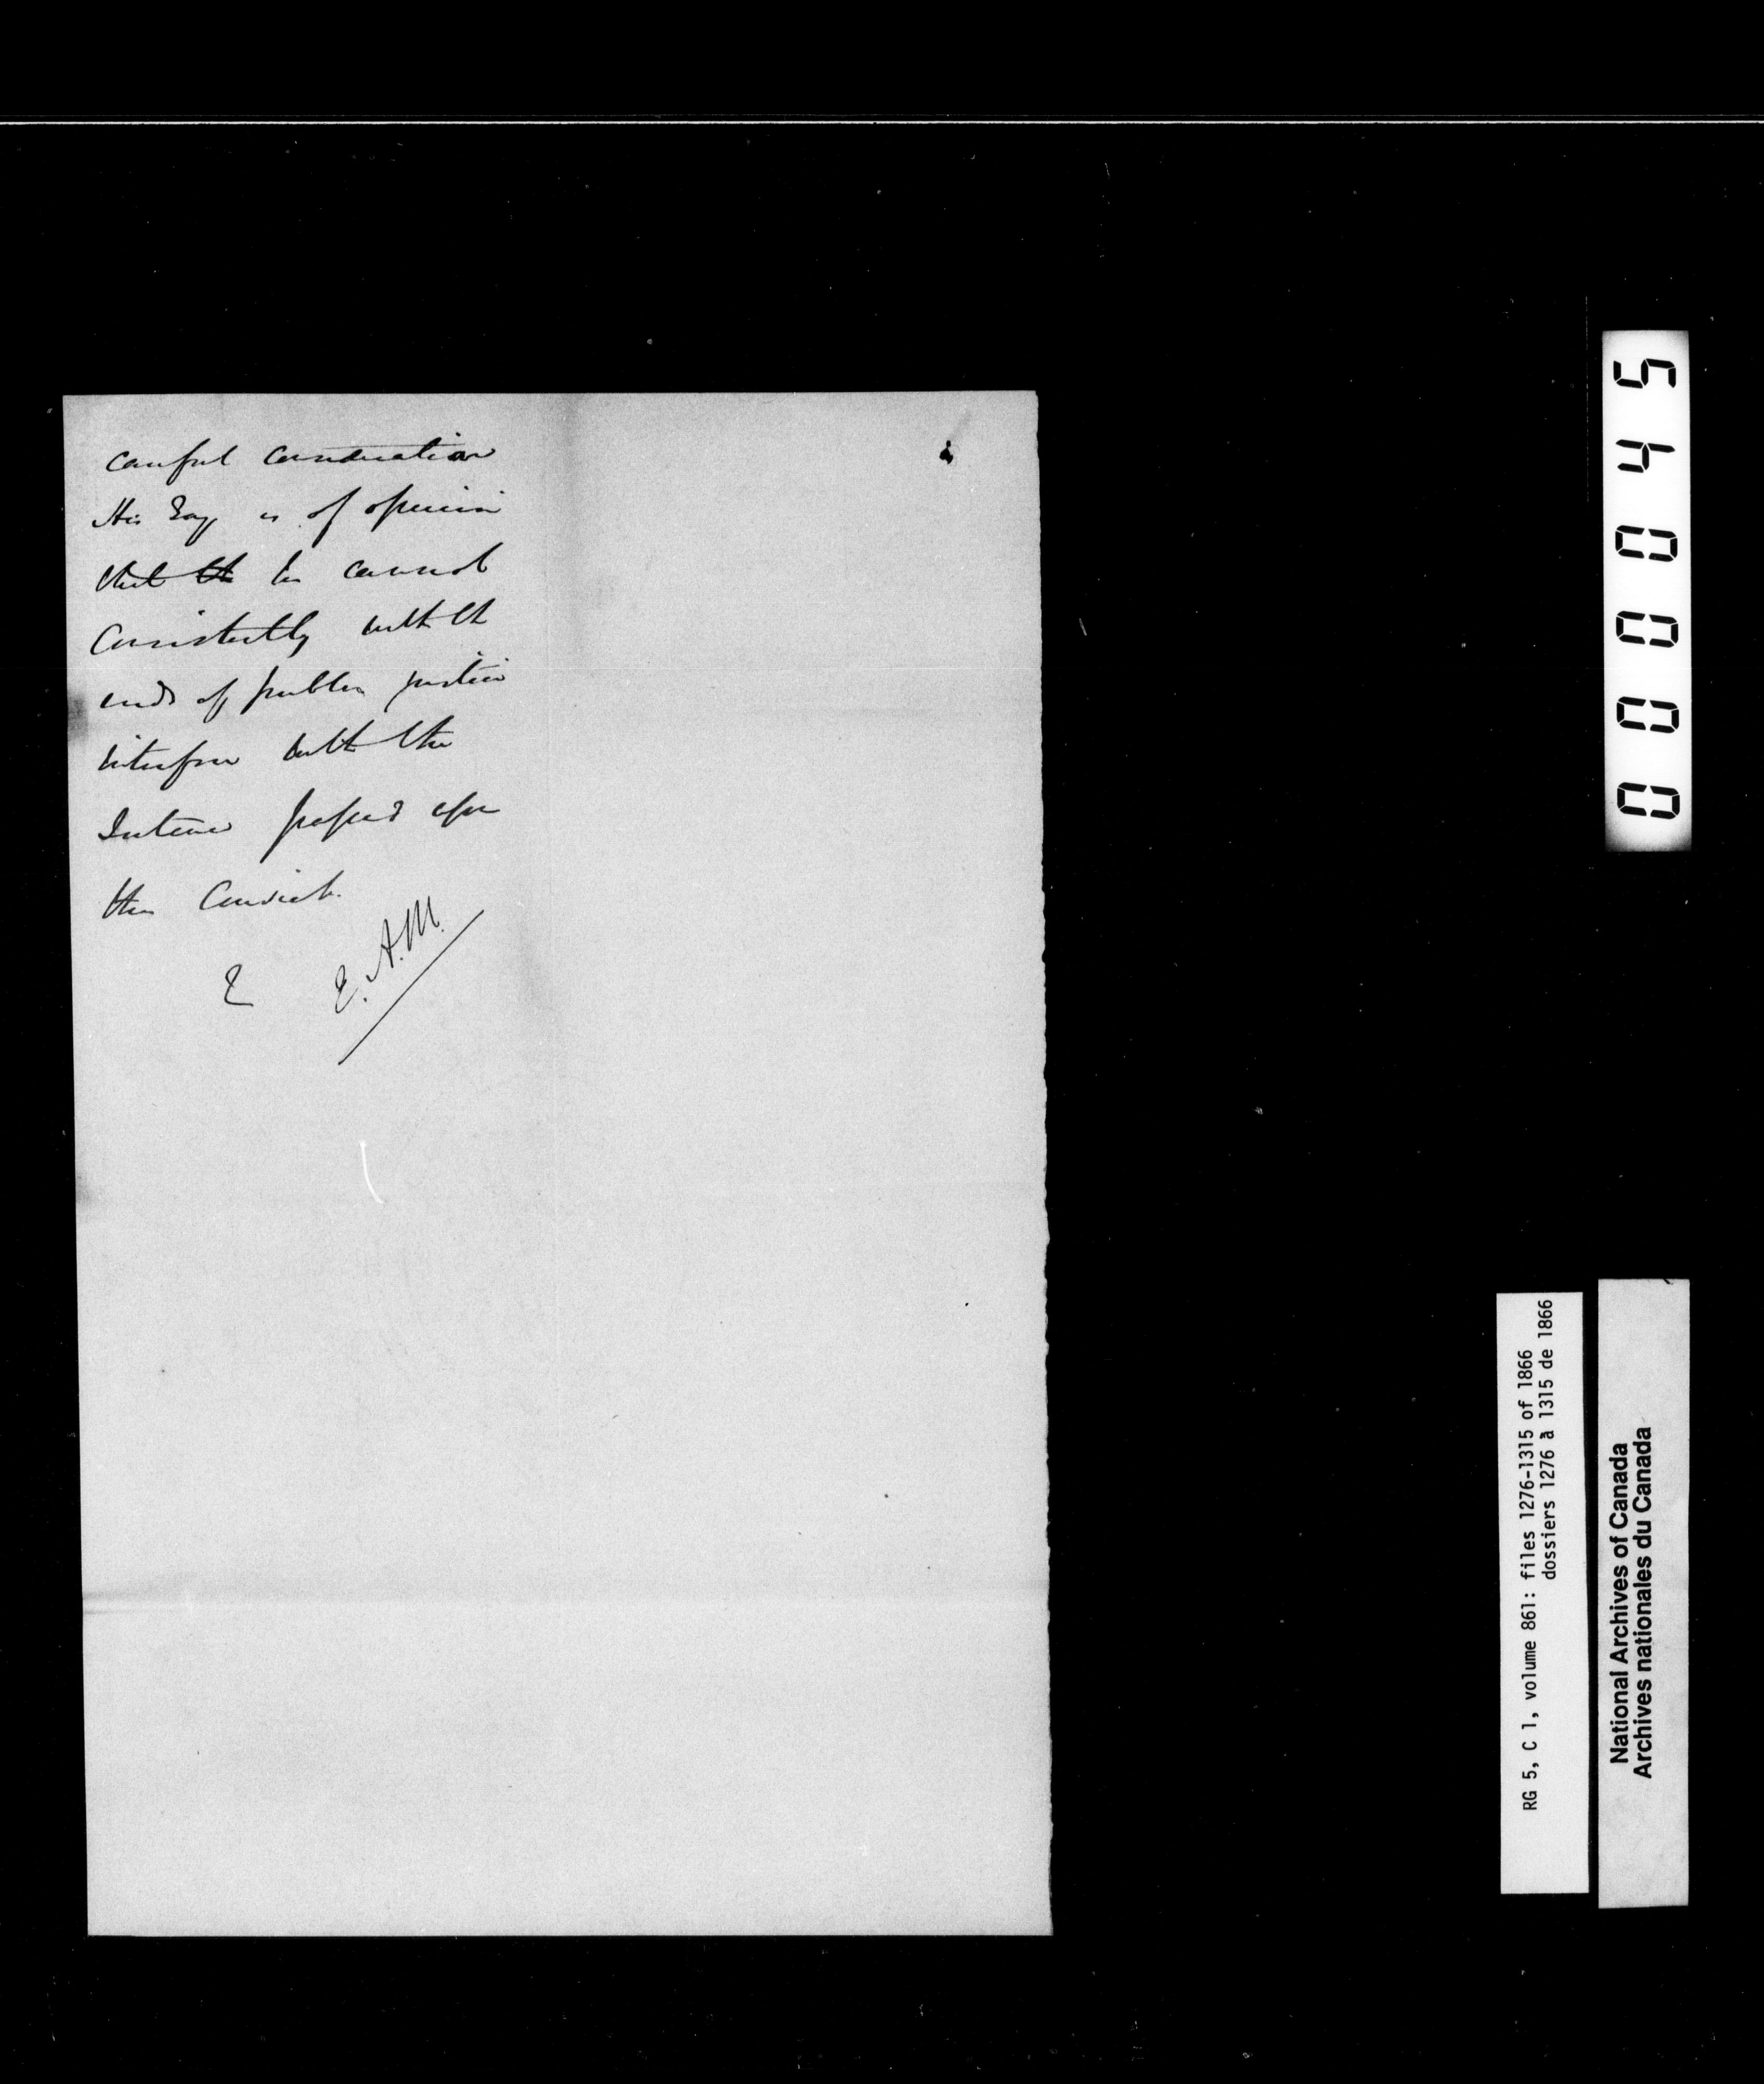 careful consideration
His Exy is of opinion
that th he cannot
Consistently with th
ends of public justice
interfere with the
Sentence passed upon
the Convict.
E. A. M.
000045
RG 5, C 1, volume 861: files 1276-1315 of 1866
dossiers 1276 à 1315 de 1866
National Archives of Canada
Archives nationales du Canada